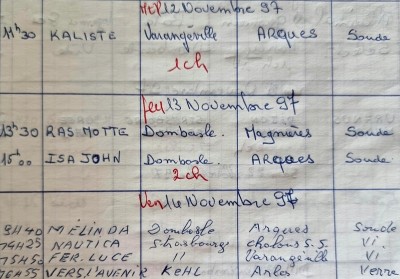 Mer 12 Novembre 97
11h30 KALISTE Varangéville Arques Soude
1ch
Jeu 13 Novembre 97
13h30 RAS MOTTE Dombasle. Magnières Soude
15h00 ISA JOHN Dombasle. Arques Soude
2ch
Ven 14 Novembre 97
9H40 MÉLINDA Dombasle Arques Soude
14H25 NAUTICA Strasbourg Chalons S.S. Vi.
15H50 FER. LUCE " Varangeville Vi
16H55 VERS L'AVENIR KEHL Arles Verre